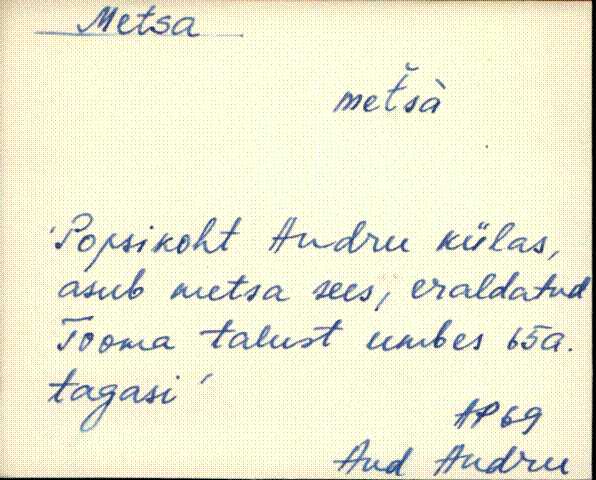 Metsa
metšà
'Popsikoht Andru külas,
asub metsa sees, eraldatud
Tooma talust umbes 65a.
tagasi'
AP 69
Aud Andru